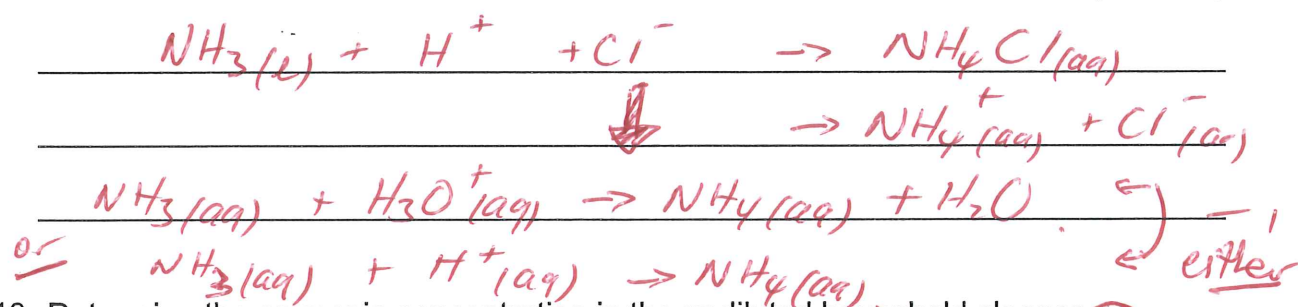 NH₃(l) + H⁺ + Cl⁻ → NH₄Cl(aq)
→ NH₄⁺(aq) + Cl⁻(aq)
NH₃(aq) + H₃O⁺(aq) → NH₄(aq) + H₂O
or NH₃(aq) + H⁺(aq) → NH₄(aq) either